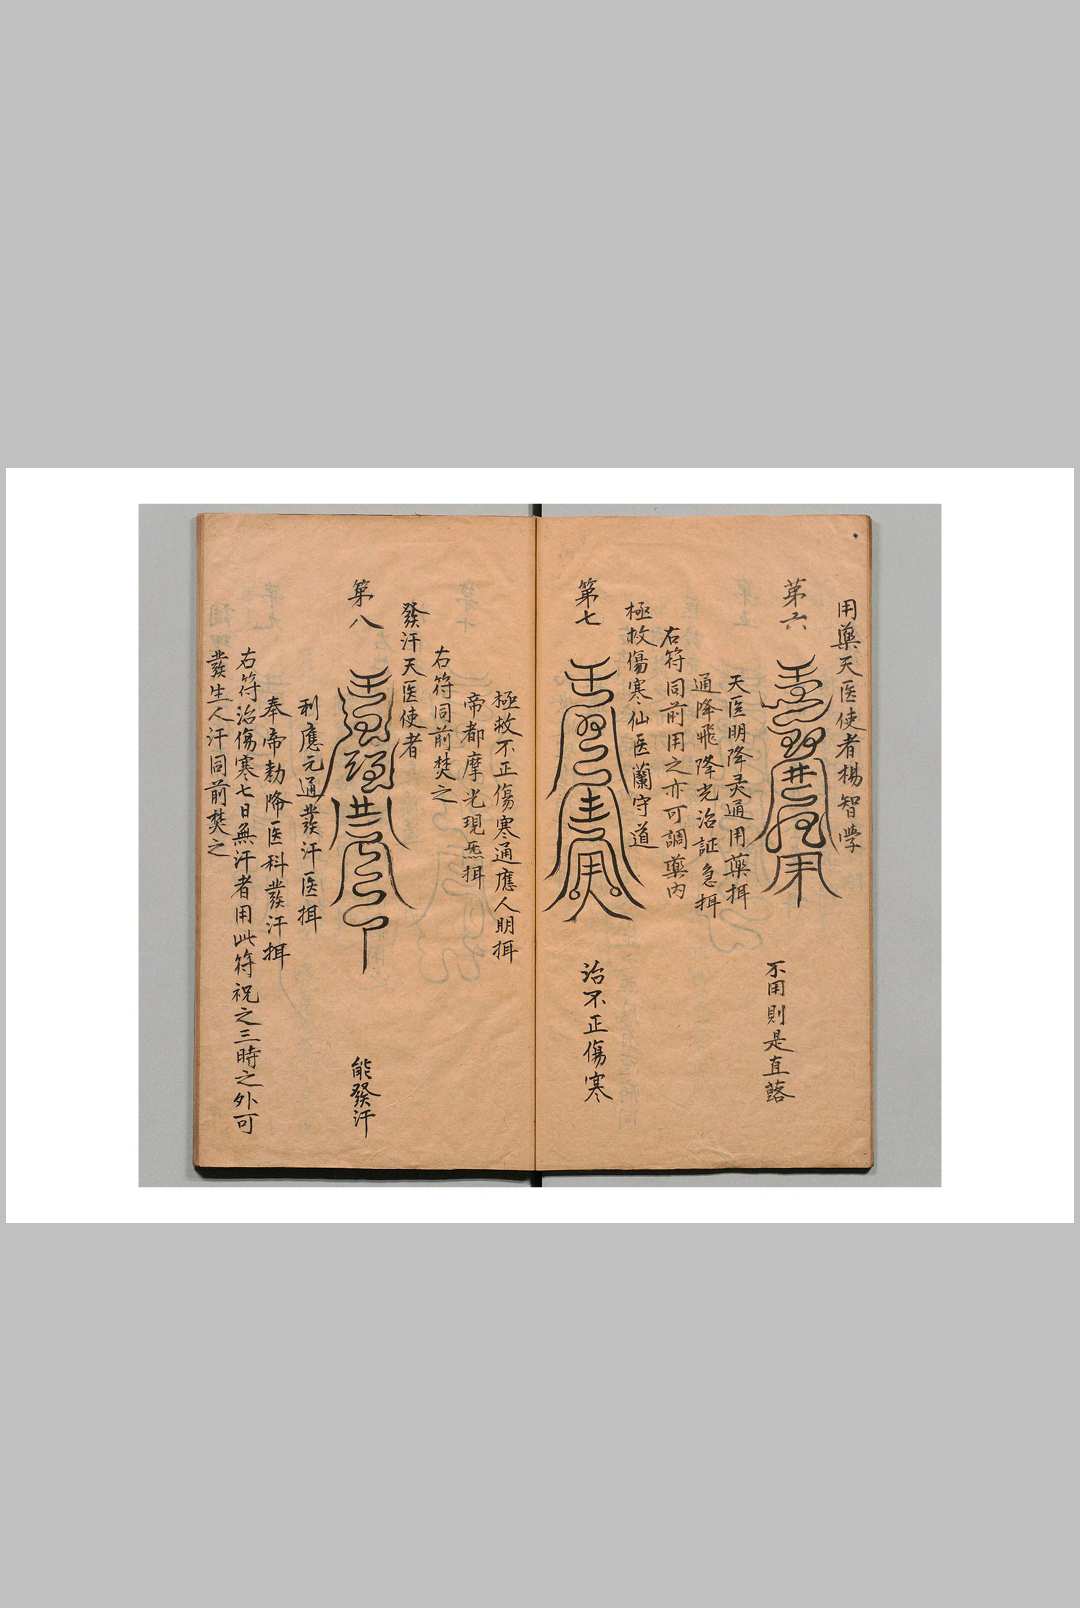 用藥天医使者楊智學
第六
不用則是直蕗
天医明降灵通用藥挕
通降飛降光治証急挕
右符同前用之亦可調藥内
極救傷寒仙医蘭守道
第七
治不正傷寒
極救不正傷寒通應人明挕
帝都摩光現炁挕
右符同前焚之
發汗天医使者
第八
能發汗
利應元通發汗医挕
奉帝勅降医科發汗挕
右符治傷寒七日無汗者用此符祝之三時之外可
發生人汗同前焚之